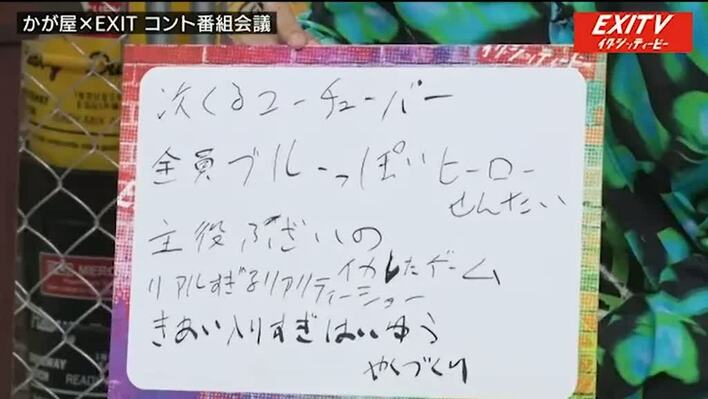 かが屋×EXIT コント番組会議
EXITV
イグジッティービー
次くるユーチューバー
全員ブルーっぽいヒーロー
せんたい
主役ふざいの
イカしたゲーム
リアルすぎるリアリティーショー
きあい入りすぎはいゆう
やくづくり